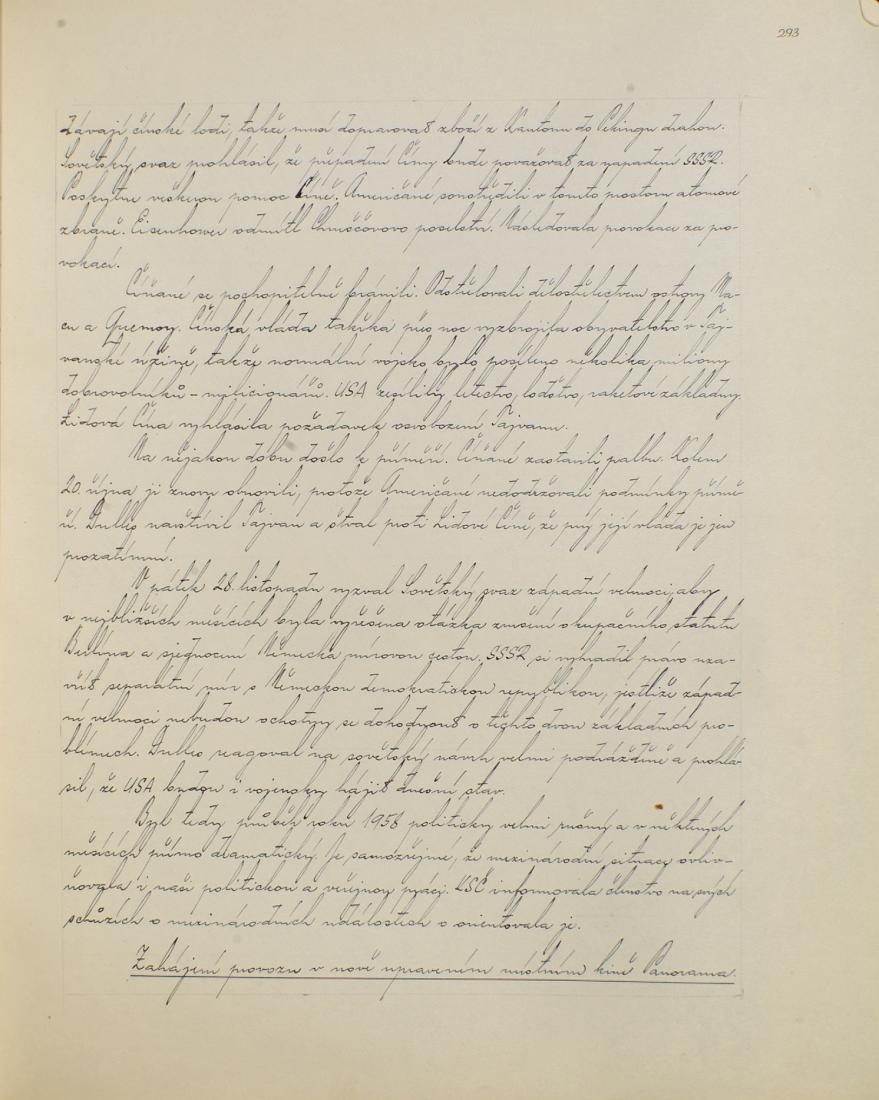 293
držávají čínské lodi, takže musí dopravovat zboží z Kantonu do Pekingu drahou.
Sovětský svaz prohlásil, že přepadení Číny bude považovat za napadení SSSR.
Poskytne veškerou pomoc Číně. Američané soustředili v tomto prostoru atomové
zbraně. Eisenhower odmítl Chruščovovo poselství. Následovala provokace za pro-
vokací.
Číňané se pochopitelně bránili. Odstřelovali dělostřelectvem ostrovy Ma-
cu a Quemoy. Čínská vláda takřka přes noc vyzbrojila obyvatelstvo v Taj-
vanské úžině, takže normální vojsko bylo posíleno několika miliony
dobrovolníků - milicionářů. USA zesílily letectvo, loďstvo, raketové základny.
Lidová Čína vyhlásila požadavek osvobození Tajvanu.
Na nějakou dobu došlo k příměří. Číňané zastavili palbu. Kolem
20. října ji znovu obnovili, protože Američané nedodržovali podmínky přímě-
ří. Dulles navštívil Tajvan a štval proti Lidové Číně, že prý její vláda je jen
prozatímní.
V pátek 28. listopadu vyzval Sovětský svaz západní velmoci, aby
v nejbližších měsících byla vyřešena otázka zrušení okupačního statutu
Berlína a sjednocení Německa mírovou cestou. SSSR si vyhradil právo uza-
vřít separátní mír s Německou demokratickou republikou, jestliže západ-
ní velmoci nebudou ochotny se dohodnout o těchto dvou základních pro-
blémech. Dulles reagoval na sovětský návrh velmi podrážděně a prohlá-
sil, že USA budou i vojensky hájit dnešní stav.
Byl tedy průběh roku 1958 politicky velmi rušný a v některých
měsících přímo dramatický. Je samozřejmé, že mezinárodní situace ovliv-
ňovala i naši politickou a veřejnou práci. KSČ informovala členstvo na svých
schůzích o mezinárodních událostech a orientovala je.
Zahájení provozu v nově upraveném místním kině Panorama.